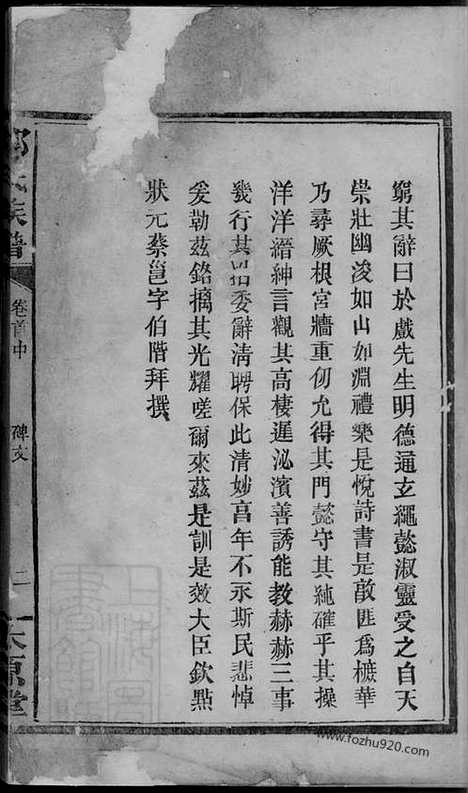 窮其辭曰於戲先生明德通玄純懿淑靈受之自天
崇壯幽浚如山如淵禮樂是悅詩書是敦匪爲摭華
乃尋厥根宮牆重仞允得其門懿守其純確乎其操
洋洋縉紳言觀其高棲遲泌濱善誘能教赫赫三事
幾行其招委辭清聘保此清妙亯年不永斯民悲悼
爰勒茲銘摛其光耀嗟爾來茲是訓是效大臣欽點
狀元蔡邕字伯階拜撰
氏族譜
卷首中
碑文
二
太原堂
www.fozhu920.com